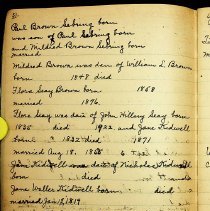 Paul Brown Sebring born
was son of Paul Sebring born
and Mildred Brown Sebring born
married
Mildred Brown was dau of William L Brown
born 1848 died
Flora Seay Brown born 1858
married 1876
Flora Seay was dau of John Hilley Seay born
1835 died 1922 and Jane Kidwell
born 1832 died 1871
married Aug 18, 1858
Jane Kidwell was dau of Nicholas Kidwell
born died and
Jane Waller Kidwell born died
married Jan 12, 1819